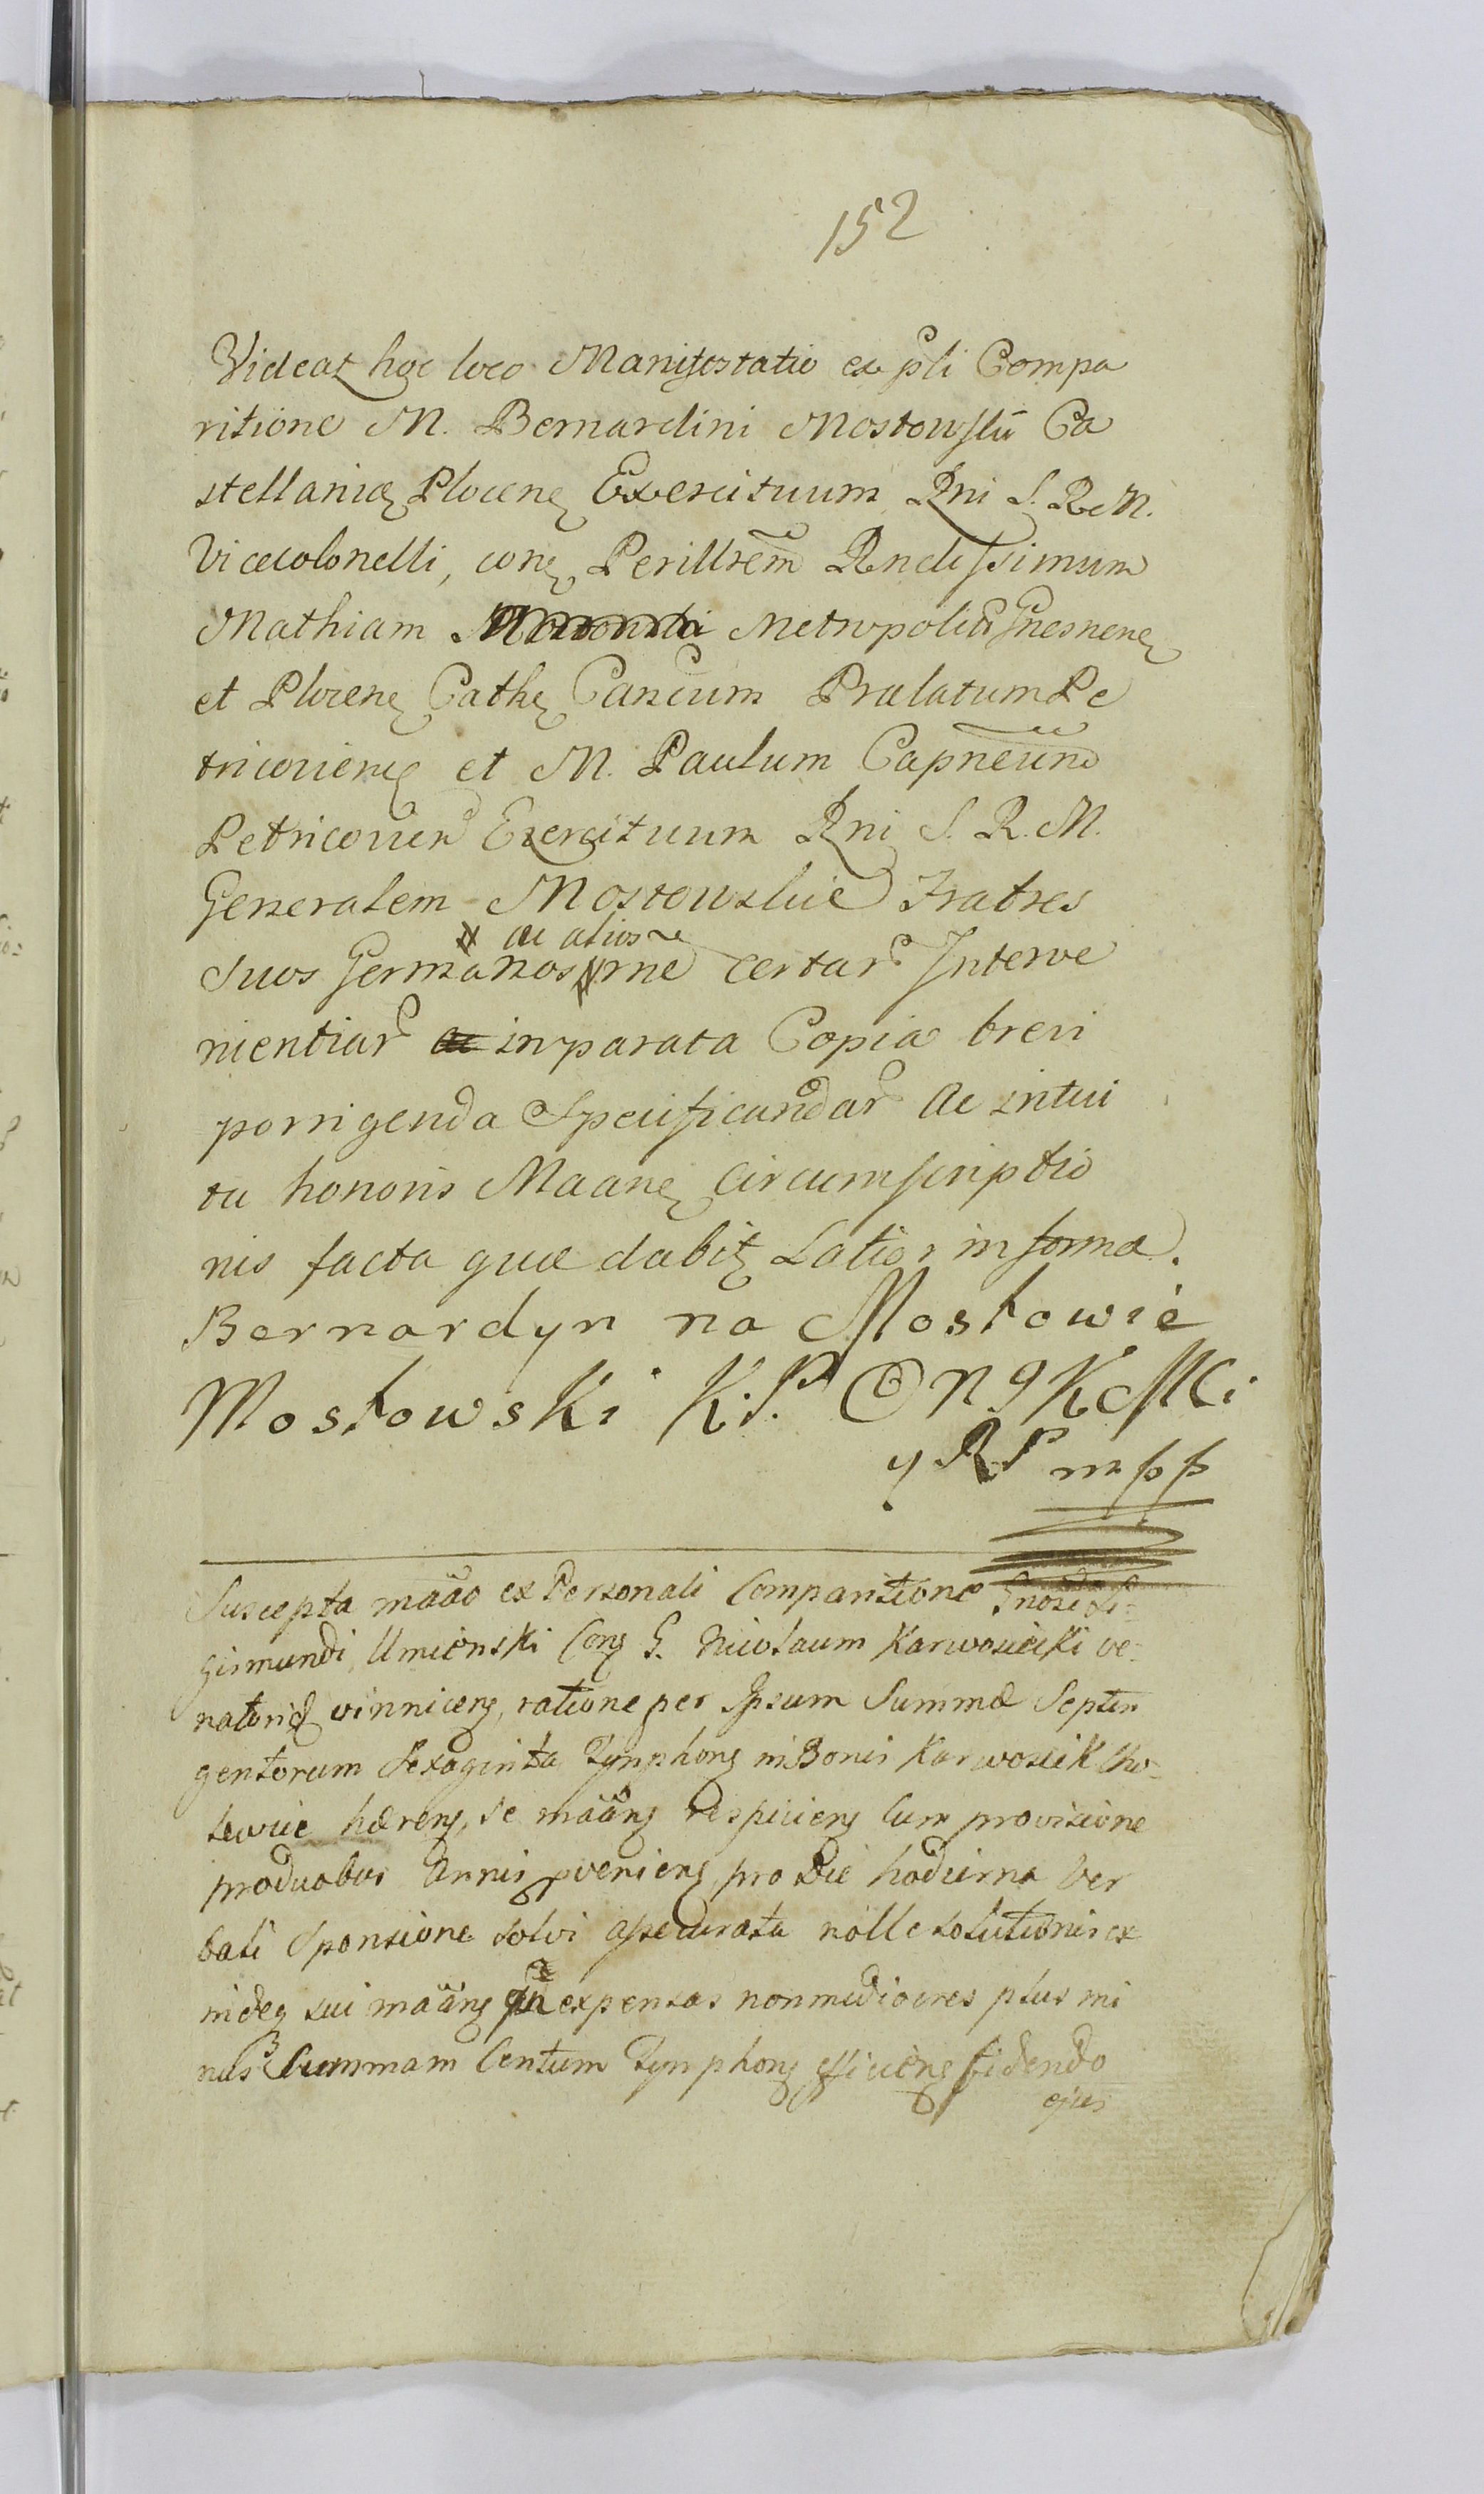 152
Videat hoc loco Manifestatio ex pli Compa
ritione M. Bernardini Mostowski Ca
stellanidæ Plocen Exercituum Rni S. R. M.
Vicecolonelli, con Perillrem Rndissimum
Mathiam Metropolit Gnesnen
et Plocen Cathe Cancum Prælatum Pe
tricovien et M. Paulum Capneum
Petricovien Exercituum Rni S. R. M.
Generalem Mostowskie Fratres
ac alios
Suos Germanos rne certar Interve
nientiar ac in parata Copia brevi
porrigenda Specificandar ac intui
tu honoris Maane circumscriptio
nis facta quæ dabit Latior in forma.
Bernardyn na Mostowie
Mostowski K. P. O N g K M Ci
y R P mpp
Suscepta maao ex Personali Comparitione Gnosi Si-
gismundi Umienski Con G. Nicolaum Karwosiecki ve-
natorid vinnicen, ratione per Ipsum Summæ Septin
gentorum Sexaginta Tynphon in Bonis Karwosieki Cho-
lewice hæren, se maan respicien cum provisione
pro duobus Annis provenien, pro Die hodierna Ver
bali Sponsione solvi assecurata nolle solutionis ex
indeq sui maan in expensas non mediocres plus mi
nus Summam Centum Tynphon efficien fidendo
ejus